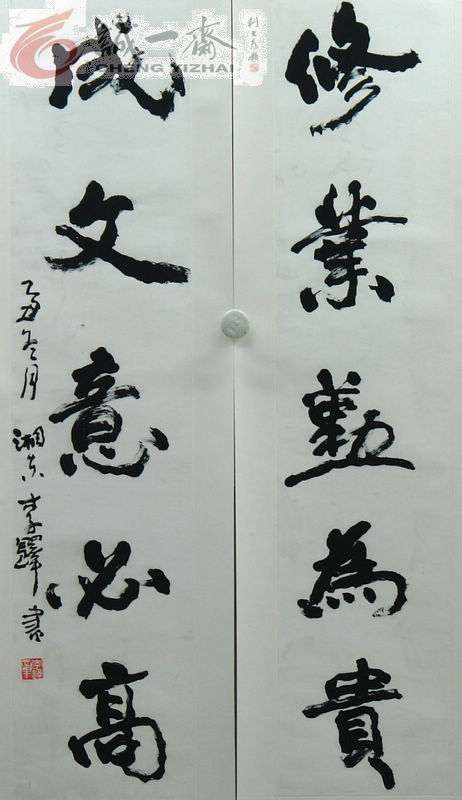 修業勤為貴
成文意必高
乙酉冬月 湘東李鐸書
誠一齋
CHENG YIZHAI